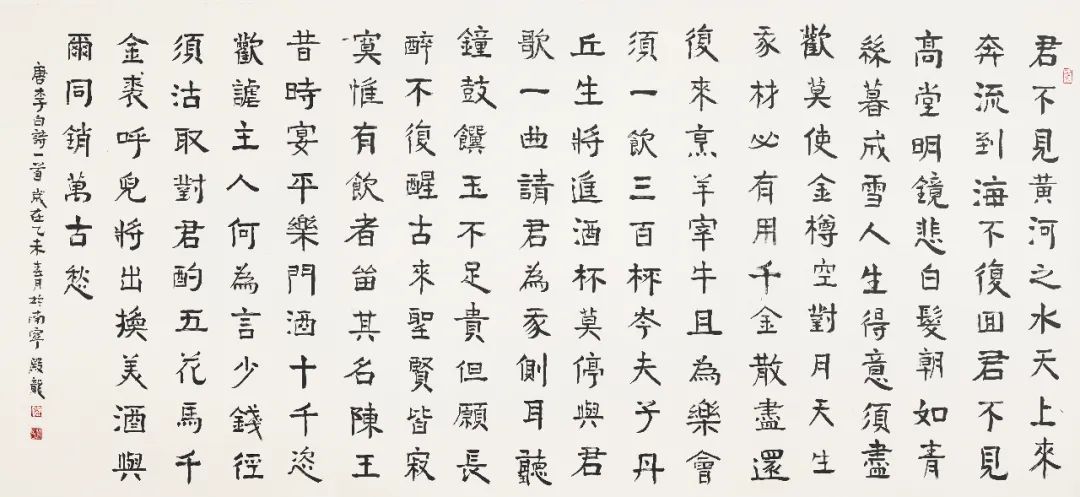 君不見黃河之水天上來
奔流到海不復回君不見
高堂明鏡悲白髮朝如青
絲暮成雪人生得意須盡
歡莫使金樽空對月天生
我材必有用千金散盡還
復來烹羊宰牛且為樂會
須一飲三百杯岑夫子丹
丘生將進酒杯莫停與君
歌一曲請君為我側耳聽
鐘鼓饌玉不足貴但願長
醉不復醒古來聖賢皆寂
寞惟有飲者留其名陳王
昔時宴平樂鬥酒十千恣
歡謔主人何為言少錢徑
須沽取對君酌五花馬千
金裘呼兒將出換美酒與
爾同銷萬古愁
唐李白詩一首歲在乙未於南寧殿龍